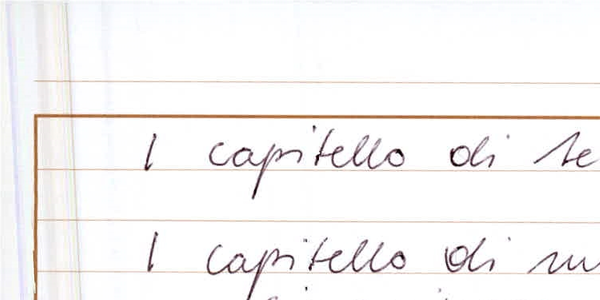 1 capitello di
1 capitello di